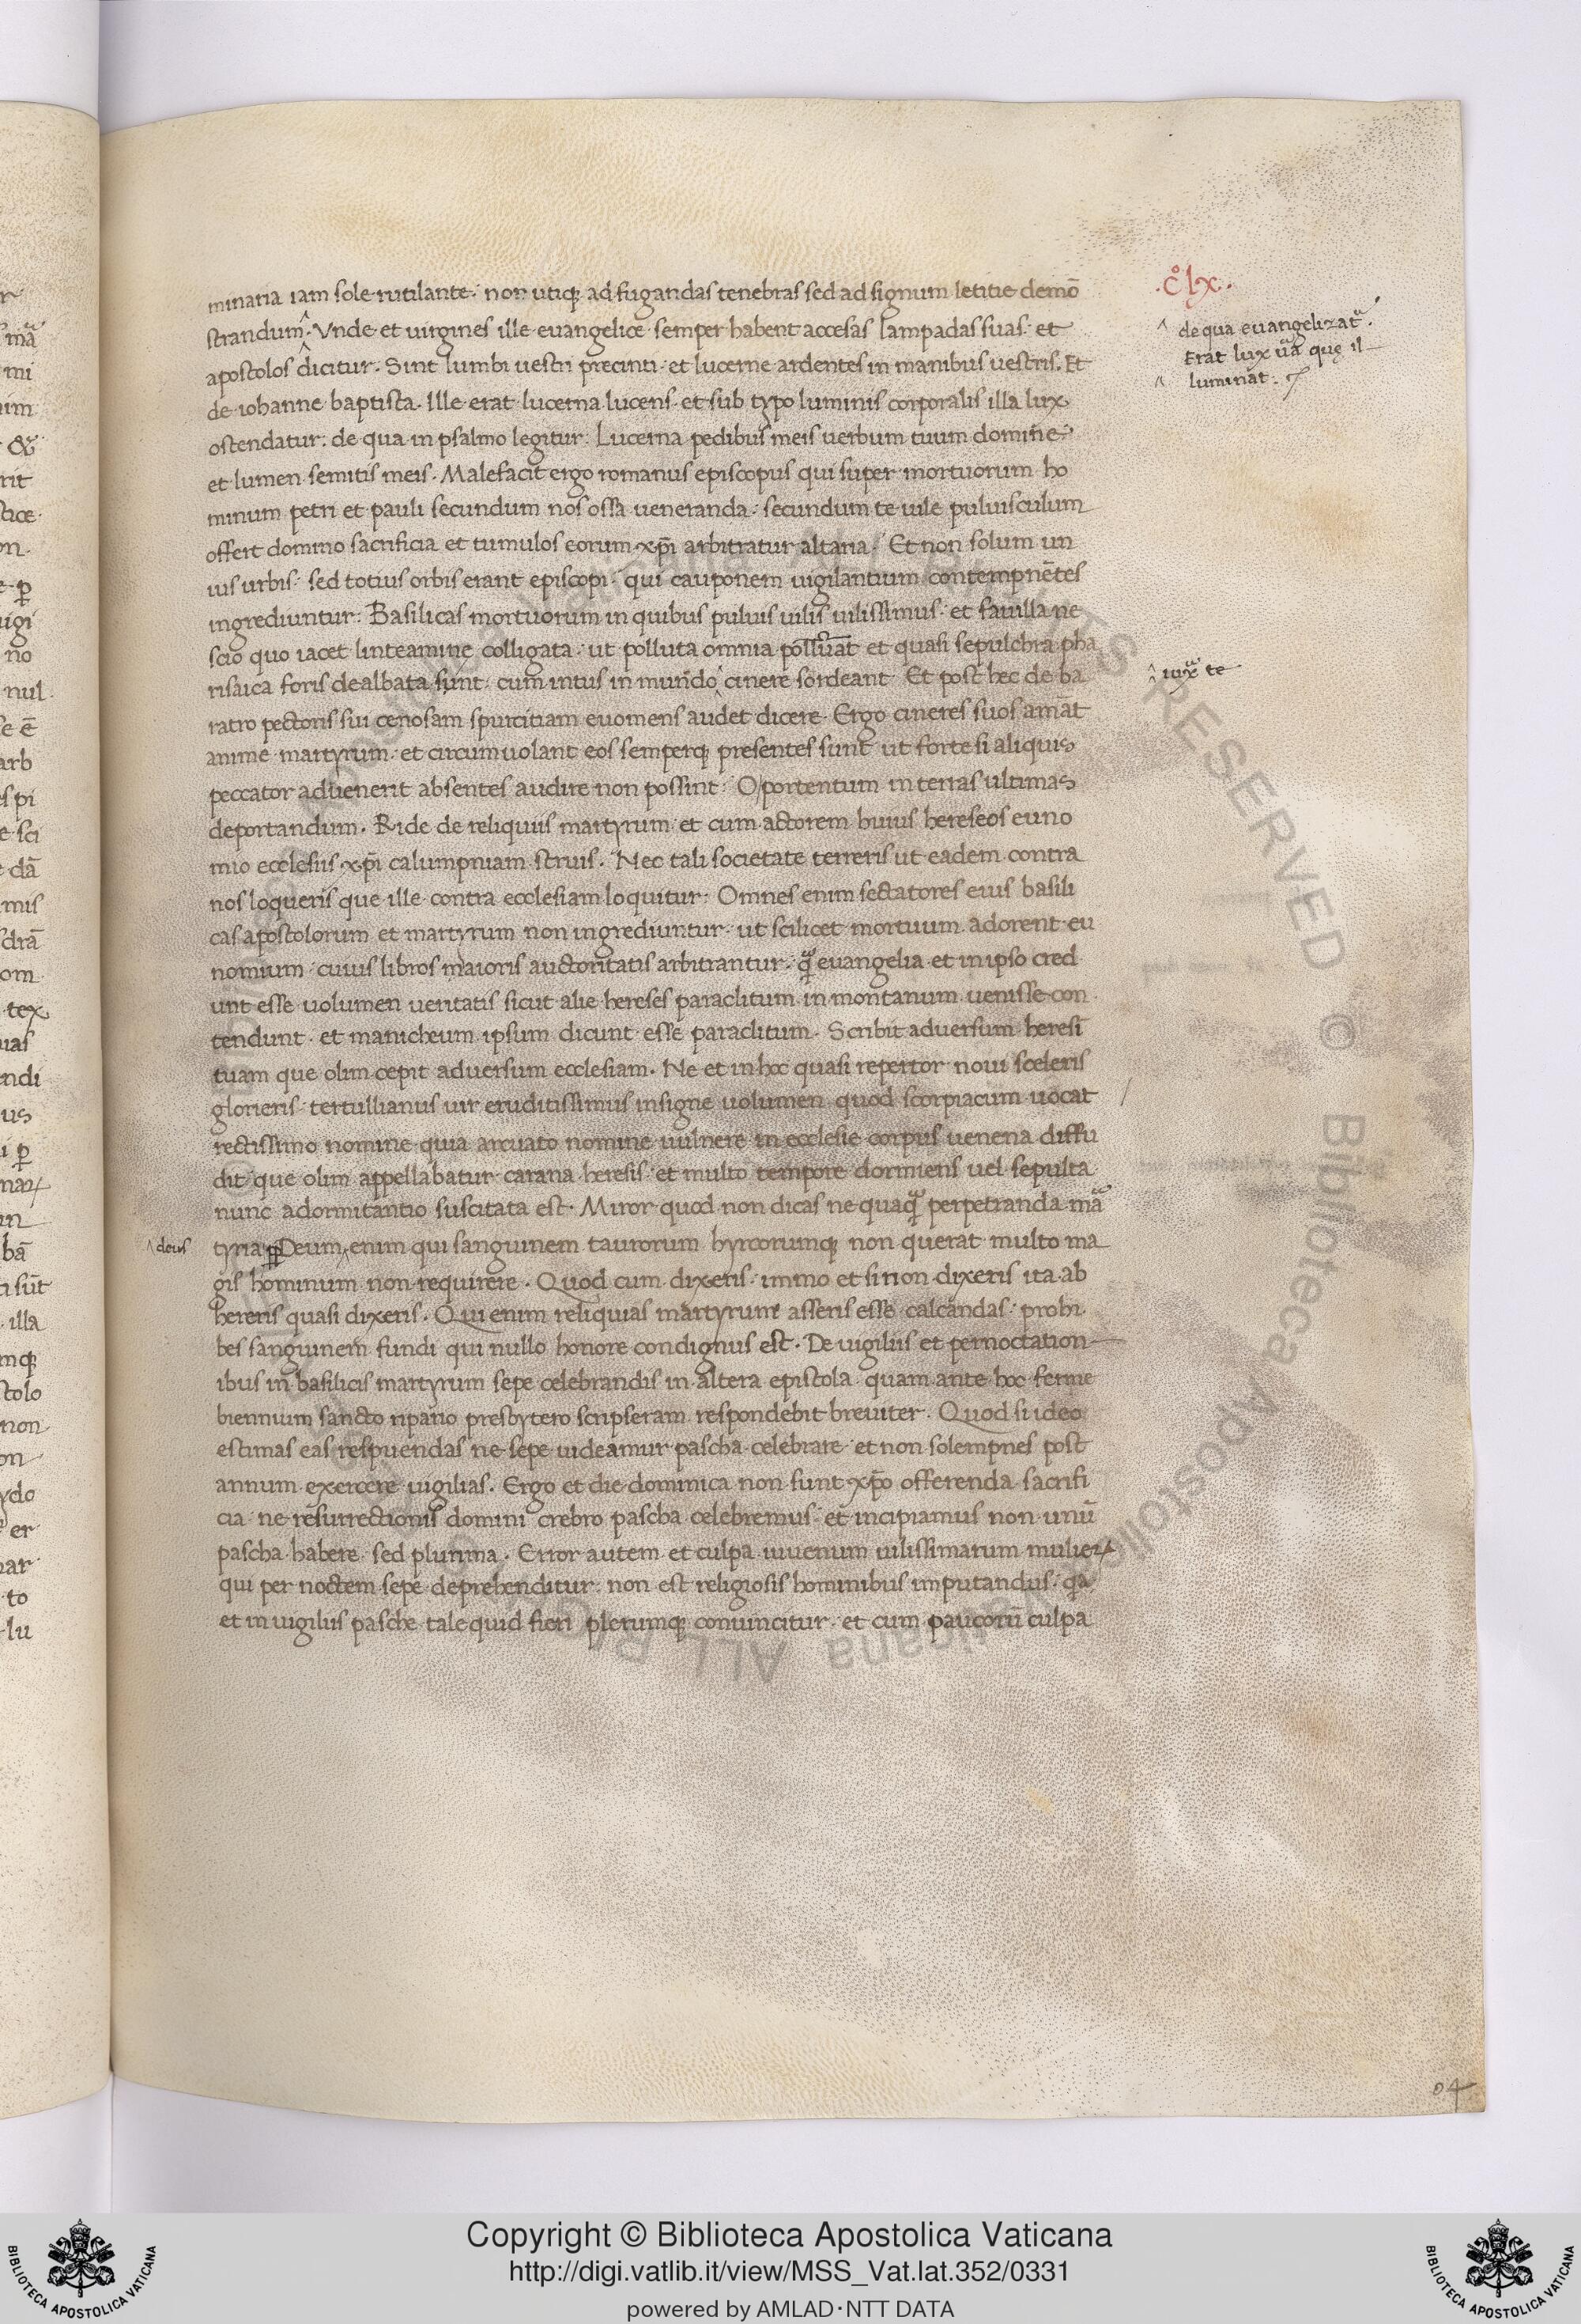 minaria iam sole rutilante. non utiqꝫ ad fugandas tenebras sed ad signum letitie demō
strandum. Vnde et uirgines ille euangelice semper habent accesas lampadas suas. et
apostolos dicitur. Sint lumbi uestri precinti. et lucerne ardentes in manibus uestris. Et
de iohanne baptista. Ille erat lucerna lucens. et sub typo luminis corporalis illa lux
ostendatur. de qua in psalmo legitur. Lucerna pedibus meis uerbum tuum domine
et lumen semitis meis. Malefacit ergo romanus episcopus qui super mortuorum ho
minum petri et pauli secundum nos ossa ueneranda. secundum te uile puluisculum
offert domino sacrificia et tumulos eorum xp̄i arbitratur altaria. Et non solum un
ius urbis. sed totius orbis erant episcopi. qui cauponem uigilantium contempnētes
ingrediuntur. Basilicas mortuorum in quibus puluis uilis uilissimus. et fauilla ne
scio quo iacet linteamine colligata. ut polluta omnia et quasi sepulchra pha
risaica foris dealbata sunt. cum intus in mundo cinere sordeant. Et post hec de ba
ratro pectoris sui cenosam spurcitiam euomens audet dicere. Ergo cineres suos amāt
anime martyrum. et circumuolant eos semperqꝫ presentes sunt. ut forte si aliquis
peccator aduenerit absentes audire non possint. O portentum in terras ultimas
deportandum. Ride de reliquiis martyrum. et cum actorem huius hereseos euno
mio ecclesiis xp̄i calumpniam struis. Nec tali societate terreris ut eadem contra
nos loqueris que ille contra ecclesiam loquitur. Omnes enim sectatores eius basili
cas apostolorum et martyrum non ingrediuntur. ut scilicet mortuum adorent eu
nomium cuius libros maioris auctoritatis arbitrantur. qᷓ euangelia et in ipso cred
unt esse uolumen ueritatis sicut alie hereses paraclitum in montanum uenisse con
tendunt. et manicheum ipsum dicunt esse paraclitum. Scribit aduersum heresī
tuam que olim cepit aduersum ecclesiam. Ne et in hoc quasi repertor noui sceleris
glorieris. tertullianus uir eruditissimus insigne uolumen quod scorpiacum uocat
rectissimo nomine quia arcuato nomine uulnere in ecclesie corpus uenena diffu
dit que olim appellabatur carana heresis. et multo tempore dormiens uel sepulta
nunc a dormitantio suscitata est. Miror quod non dicas ne quaqᷓ perpetranda mᷓa
tyria Deum enim qui sanguinem taurorum hyrcorumqꝫ non querat multo ma
gis hominum non requirere. Quod cum dixeris. immo et si non dixeris ita ab
hereris quasi dixeris. Qui enim reliquias martyrum asseris esse calcandas. prohi
bes sanguinem fundi qui nullo honore condignus est. De uigiliis et pernoctation
ibus in basilicis martyrum sepe celebrandis in altera epistola quam ante hoc ferme
biennium sancto ripario presbytero scripseram respondebit breuiter. Quod si ideo
estimas eas respuendas ne sepe uideamur pascha celebrare. et non solempnes post
annum exercere uigilias. Ergo et die dominica non sunt xp̄o offerenda sacrifi
cia ne resurrectionis domini crebro pascha celebremus. et incipiamus non unū
pascha habere. sed plurima. Error autem et culpa iuuenum uilissimarum mulieꝝ
qui per noctem sepe deprehenditur. non est religiosis hominibus imputandus. qa
et in uigiliis pasche tale quid fieri plerumqꝫ conuincitur. et cum paucorū culpa
.c̊ lx.
de qua euangelizatᷓ.
Erat lux uᷓa quę il
luminat.
iuxᷓ te
deus
94
Copyright © Biblioteca Apostolica Vaticana
http://digi.vatlib.it/view/MSS_Vat.lat.352/0331
powered by AMLAD·NTT DATA
BIBLIOTECA APOSTOLICA VATICANA
BIBLIOTECA APOSTOLICA VATICANA